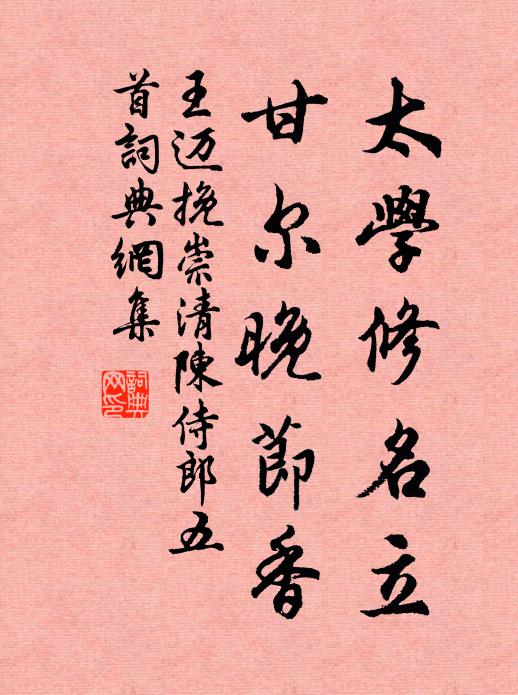 太學修名立
甘尔晚節香
王迈挽崇清陳侍郎五
首詞典網集
詞典
网印